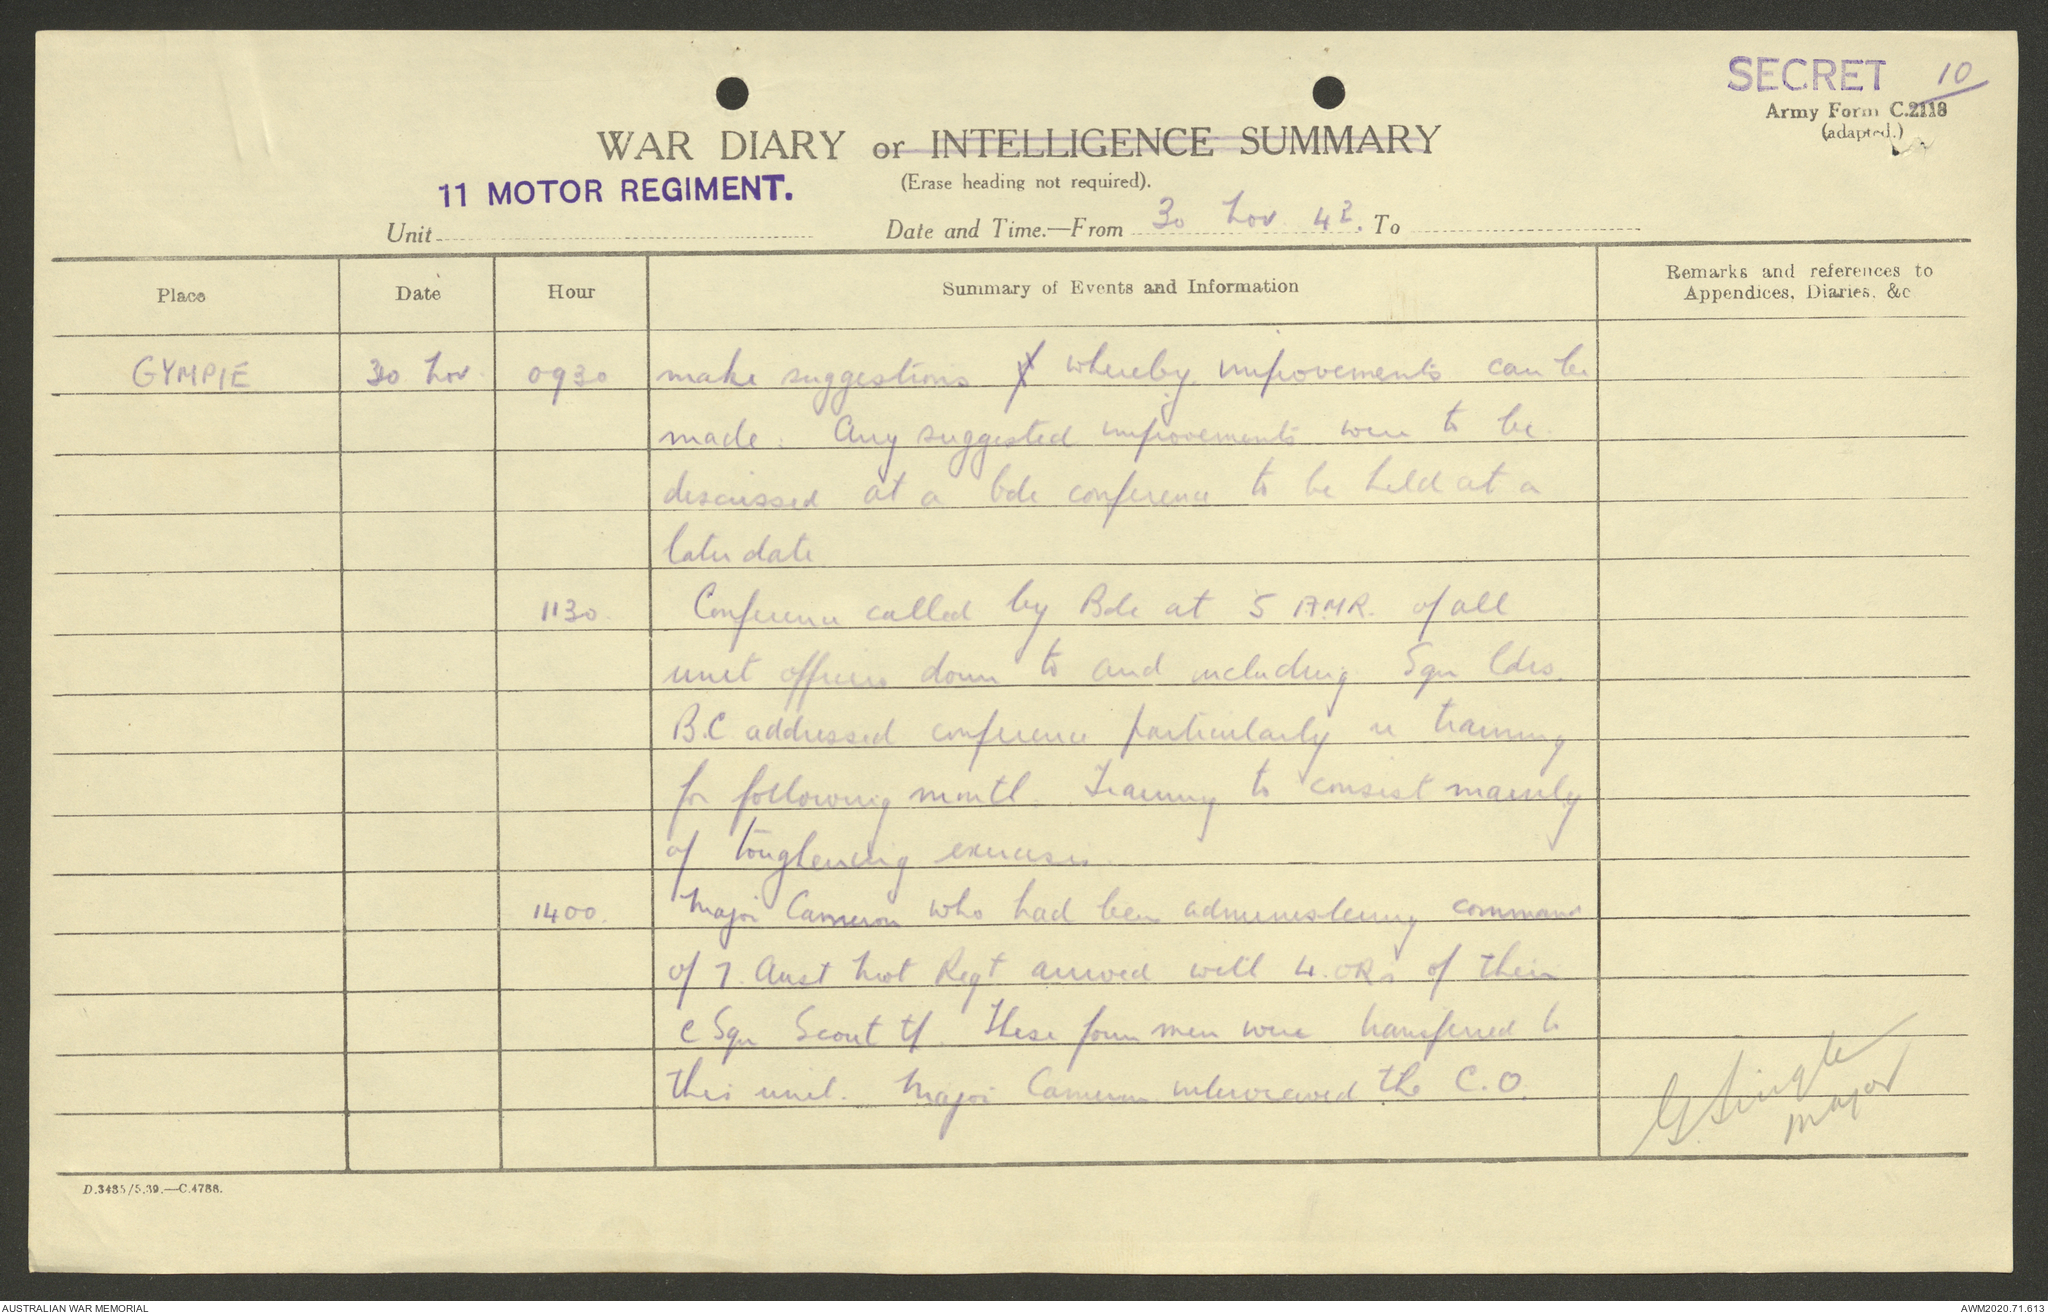 SECRET 10
Army Form C.2118
(adapted.)
WAR DIARY or INTELLIGENCE SUMMARY
(Erase heading not required).
11 MOTOR REGIMENT.
Unit
Date and Time.—From 30 Nov 42. To
Place
Date
Hour
Summary of Events and Information
Remarks and references to
Appendices, Diaries, &c
GYMPIE 30 Nov 0930 make suggestions whereby improvements can be
made. Any suggested improvements were to be
discussed at a bde conference to be held at a
later date
1130. Conference called by Bde at 5 AMR. of all
unit officers down to and including Sqn ldrs.
B.C addressed conference particularly re training
for following month. Training to consist mainly
of toughening exercises
1400. Major Cameron who had been administering command
of 7. Aust Mot Regt arrived with 4. ORs of their
C Sqn Scout tp. These four men were transferred to
this unit. Major Cameron interviewed the C.O.
G Single
Major
D.3435/5.39.—C.4788.
AUSTRALIAN WAR MEMORIAL
AWM2020.71.613